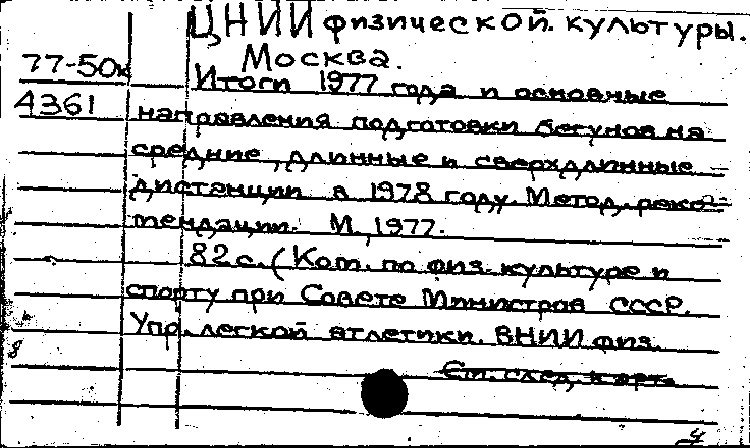 ЦНИИ физической культуры.
Москва.
77-50к
Итоги 1977 года и основные
4361
направления подготовки бегунов на
средние, длинные и сверхдлинные
дистанции в 1978 году. Метод. реко-
мендации. М., 1977.
82 с. (Ком. по физ. культуре и
спорту при Совете Министров СССР.
Упр. легкой атлетики. ВНИИ физ.
См. след. карт.
8
4